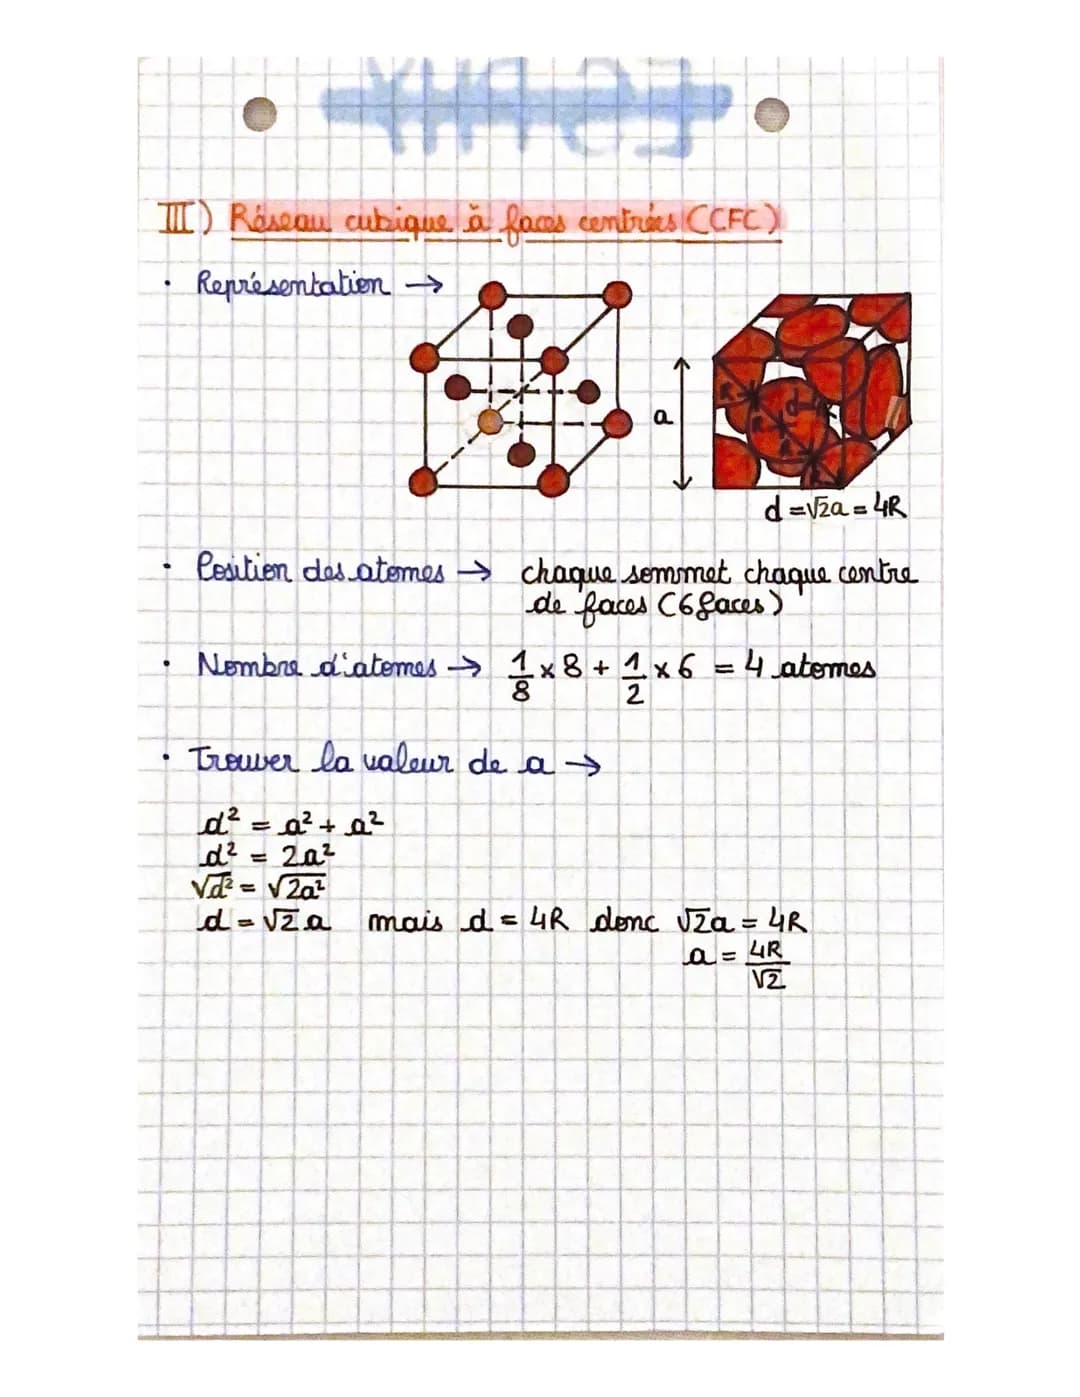 III) Réseau cubique à faces centrées (CFC)
· Représentation →
a
R
d
R
R
d = √2a = 4R
· Position des atomes → chaque sommet chaque centre
de faces (6 faces)
· Nombre d'atomes → 1/8 x 8 + 1/2 x 6 = 4 atomes
· Trouver la valeur de a →
d² = a² + a²
d² = 2a²
√d² = √2a²
d = √2 a mais d = 4R donc √2a = 4R
a = 4R/√2